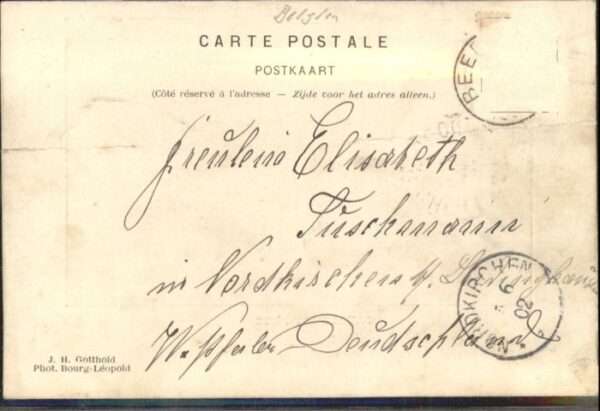 Belgien
CARTE POSTALE
POSTKAART
(Côté réservé à l'adresse — Zijde voor het adres alleen.)
BEE
Freulein Elisabeth
Tüschmann
in Nordkirchen
Westfalen Deutschland
NORDKIRCHEN
6
02
J. H. Gotthold
Phot. Bourg-Léopold